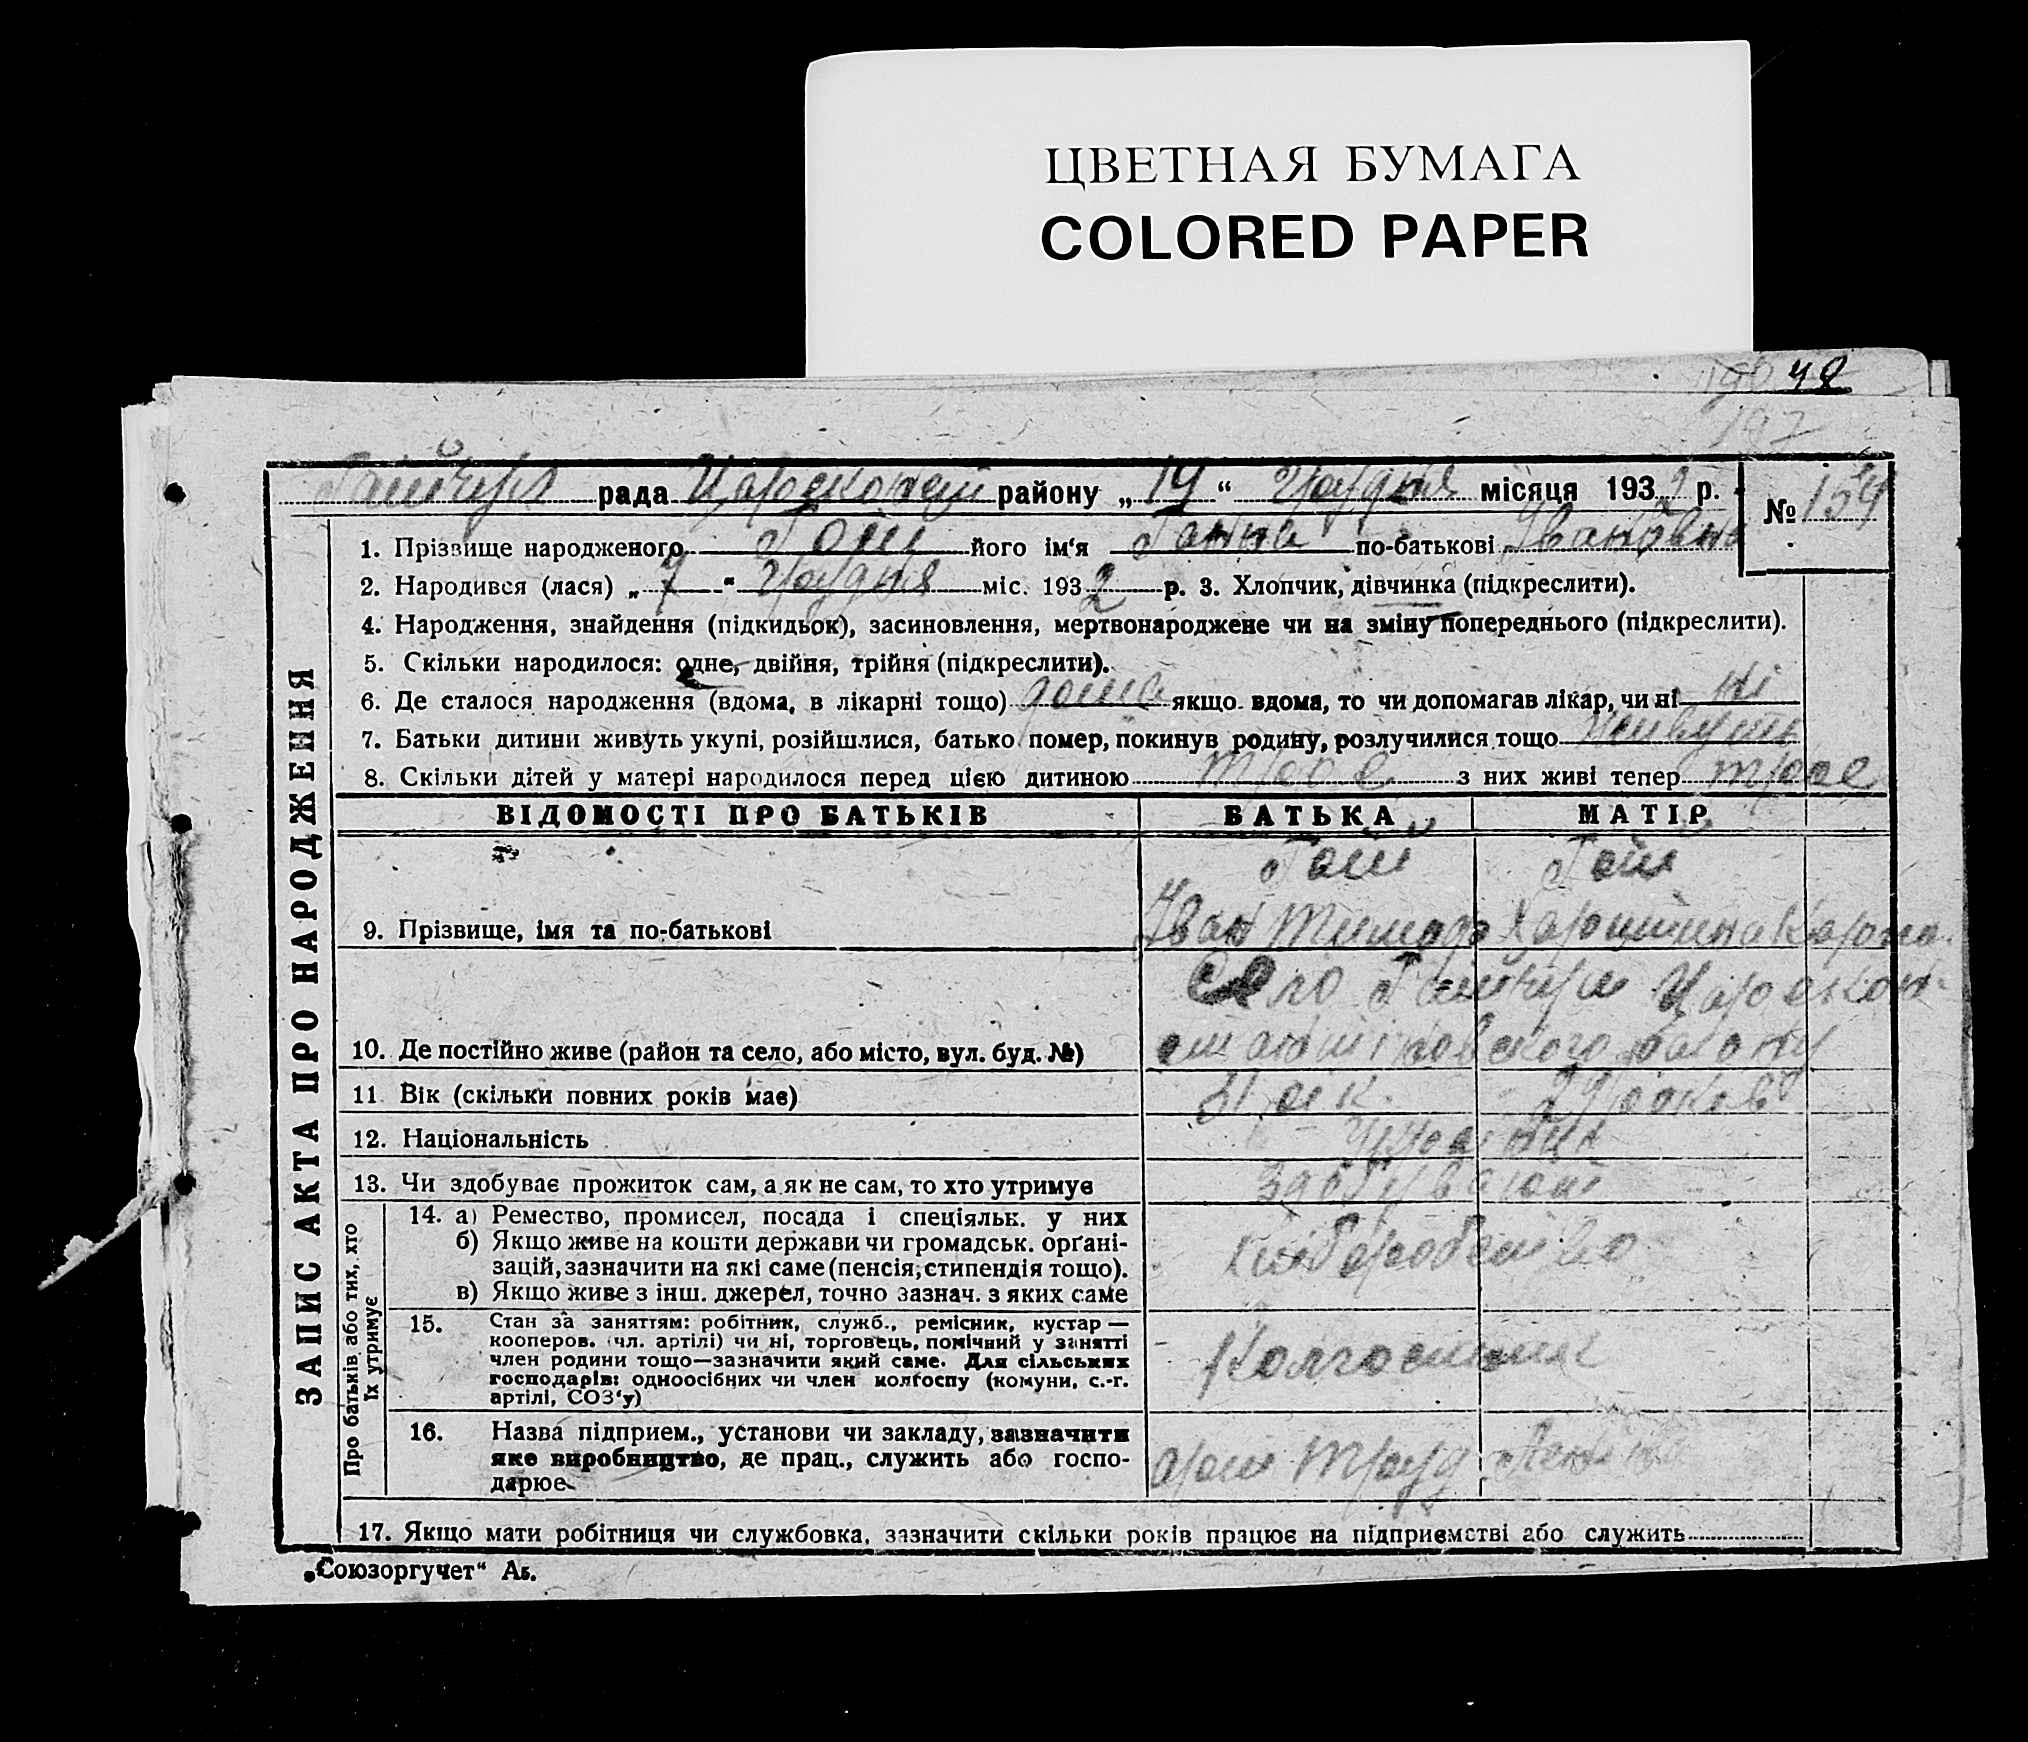 ЦВЕТНАЯ БУМАГА
COLORED PAPER
48
197
Гайчур рада Царескон район​у „ 19 “ Грудня місяця 1932 р. № 154
ЗАПИС АКТА ПРО НАРОДЖЕННЯ
1. Прізвище народженого Гай його ім‘я Ганна по-батькові Івановна
2. Народився (лася) „ 7 “ Грудня міс. 1932 р. 3. Хлопчик, дівчинка (підкреслити).
4. Народження, знайдення (підкидьок), засиновлення, мертвонароджене чи на зміну попереднього (підкреслити).
5. Скільки народилося: одне, двійня, трійня (підкреслити).
6. Де сталося народження (вдома, в лікарні тощо) дома якщо вдома, то чи допомагав лікар, чи ні ні
7. Батьки дитини живуть укупі, розійшлися, батько помер, покинув родину, розлучилися тощо живуть
8. Скільки дітей у матері народилося перед цією дитиною троє з них живі тепер троє
ВІДОМОСТІ ПРО БАТЬКІВ БАТЬКА МАТІР
Гай Гай
9. Прізвище, імя та по-батькові Іван Тимоф
Село Гайчур Царескон-
10. Де постійно живе (район та село, або місто, вул. буд. №) стантіновского району
11 Вік (скільки повних років має) 31 рік. 29 років
12. Національність Українці
13. Чи здобуває прожиток сам, а як не сам, то хто утримує здобувають
Про батьків або тих, хто їх утримує
14. а) Ремество, промисел, посада і спеціяльк. у них
б) Якщо живе на кошти держави чи громадськ. орґані-
зацій, зазначити на які саме (пенсія, стипендія тощо).
в) Якщо живе з інш. джерел, точно зазнач. з яких саме
хліборобство
15. Стан за заняттям: робітник, служб., ремісник, кустар —
кооперов. (чл. артілі) чи ні, торговець, помічний у занятті
член родини тощо—зазначити який саме. Для сільських
господарів: одноосібних чи член колгоспу (комуни, с.-г.
артілі, СОЗ‘у)
Колгоспник
16. Назва підприєм., установи чи закладу, зазначити
яке виробництво, де прац., служить або госпо-
дарює
арт Труд Леніна
17. Якщо мати робітниця чи службовка, зазначити скільки років працює на підприємстві або служить
„Союзоргучет“ Аб.